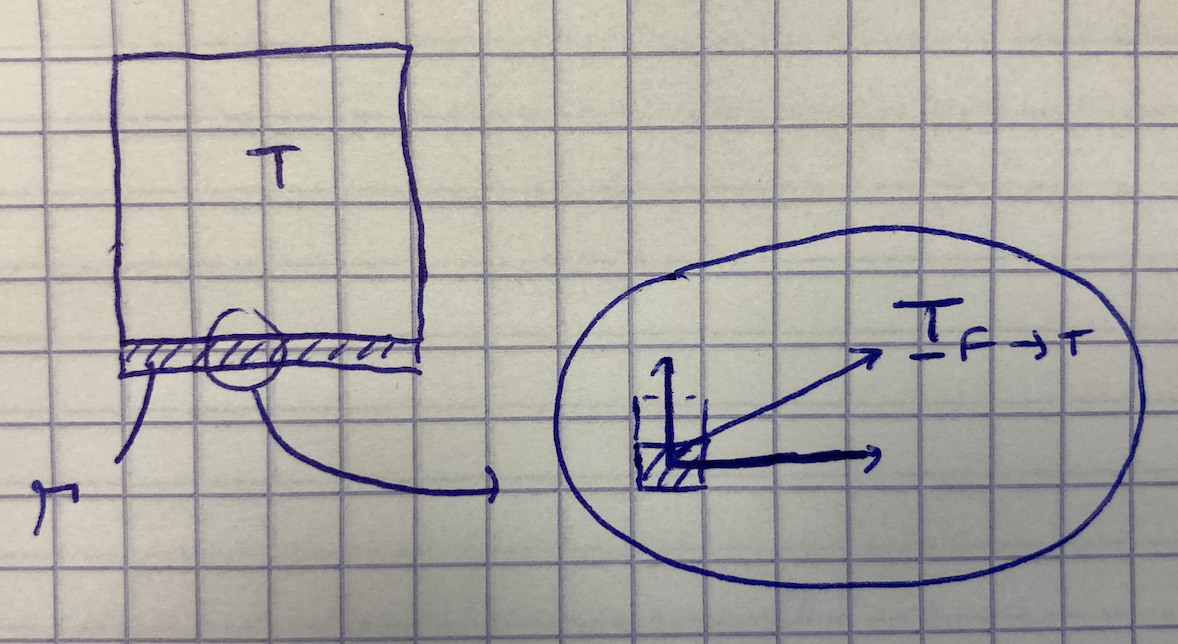 T
T F → T